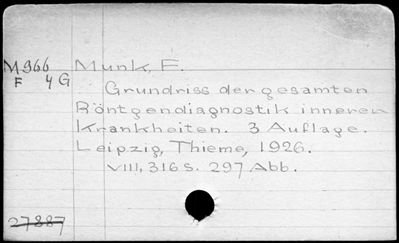 M966 Munk, F.
F 4G
Grundriss der gesamten
Röntgendiagnostik innerer
Krankheiten. 3 Auflage.
Leipzig, Thieme, 1926.
VIII, 316 S. 297 Abb.
27887